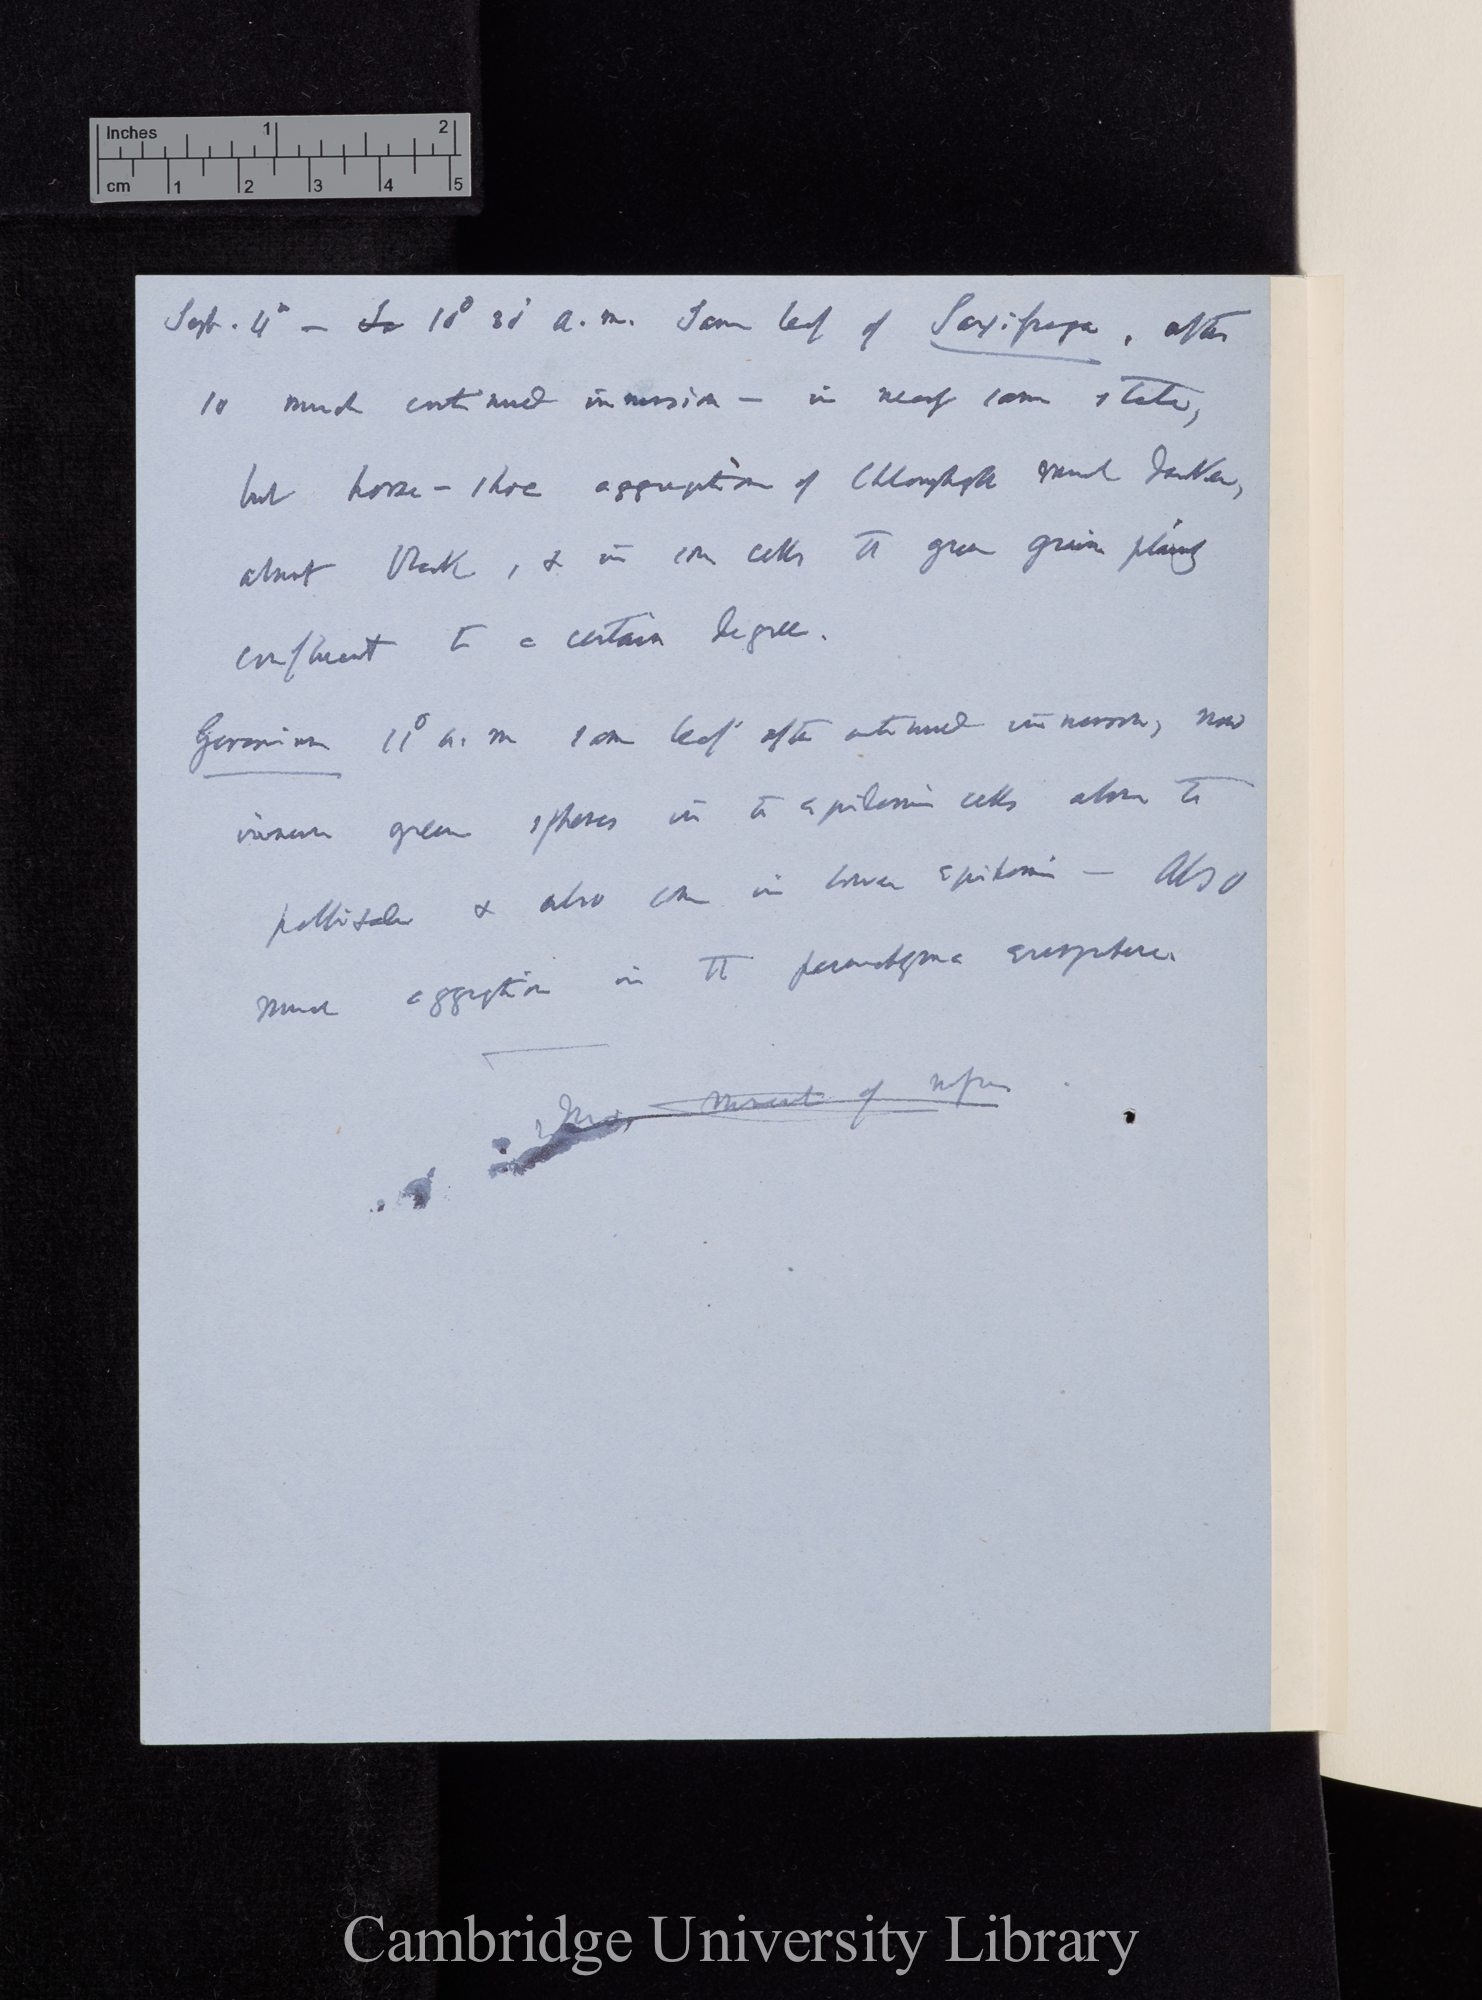 Inches 1 2
cm 1 2 3 4 5
Sept. 4th — So 10° 30' a.m. Same leaf of Saxifraga, after
so much continued immersion — in nearly same state,
but horse-shoe aggregation of Chlorophyll much darker,
almost black, & in some cells the green grains plainly
confluent to a certain degree.
Geranium 11° a.m same leaf after continued immersion, now
green spheres in the epidermic cells above the
pallisade & also some in lower epidermis — Also
much aggregation in the parenchyma everywhere.
of
Cambridge University Library